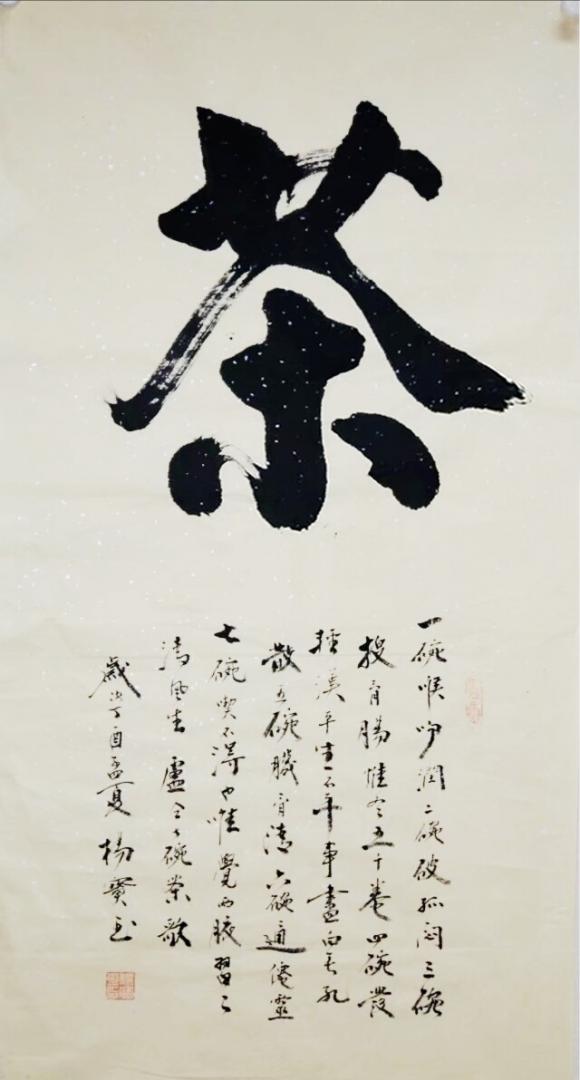 茶
一碗喉吻潤二碗破孤悶三碗
搜肓腸惟它五千卷四碗發
輕漢平生不平事盡向毛孔
散五碗肌骨清六碗通僊靈
七碗喫不得也唯覺兩腋習〻
清風生 盧仝七碗茶歌
歲次丁酉孟夏 楊寶玉